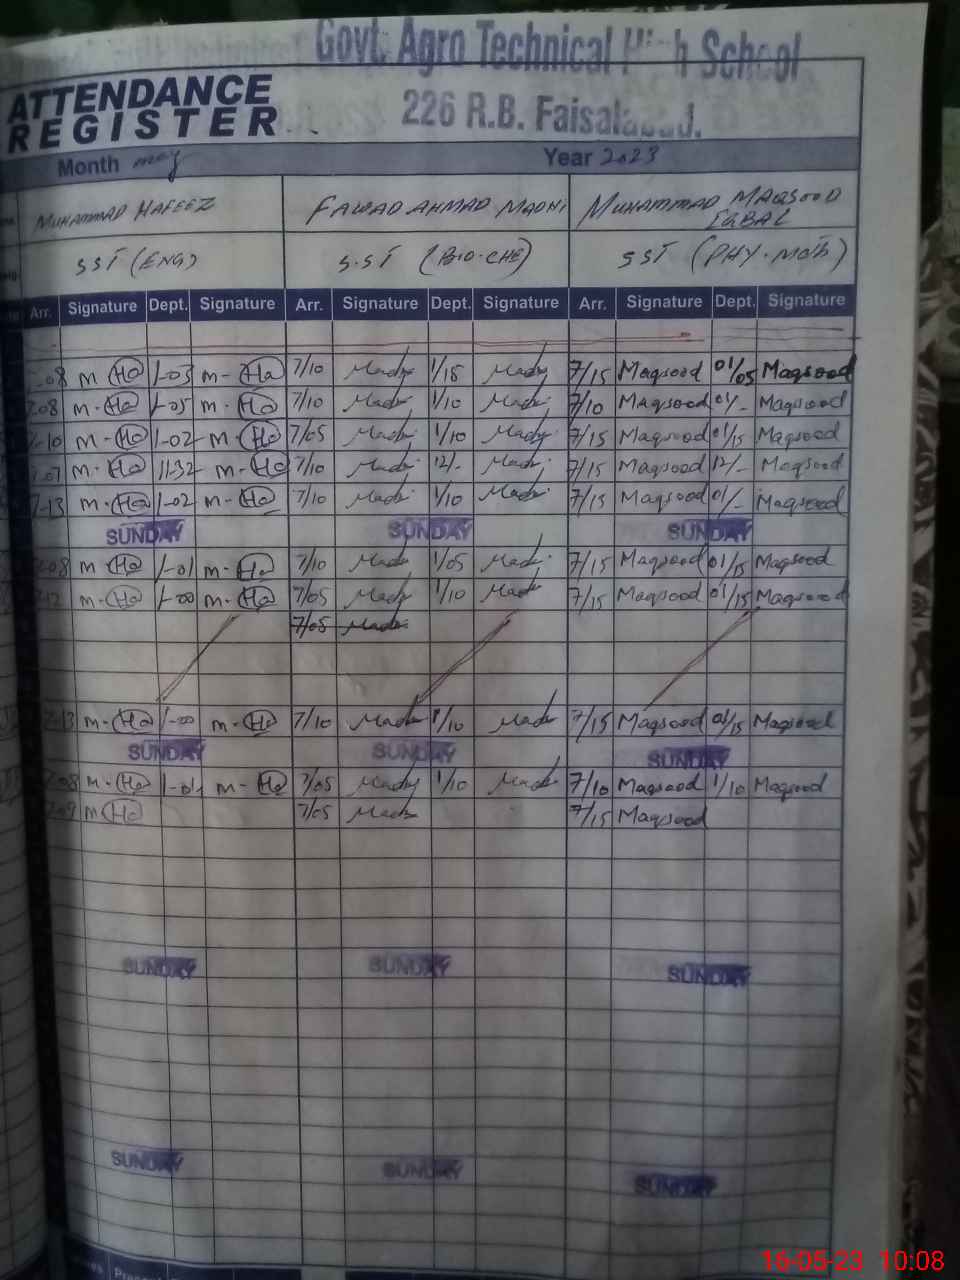 Govt. Agro Technical High School
ATTENDANCE
REGISTER
226 R.B. Faisalabad.
Month may Year 2023
MUHAMMAD HAFEEZ FAWAD AHMAD MADNI MUHAMMAD MAQSOOD
IQBAL
SST (ENG) S.ST (BIO-CHE) SST (PHY-Math)
Arr. Signature Dept. Signature Arr. Signature Dept. Signature Arr. Signature Dept. Signature
-08 m-Ha 1-03 m-Ha 7/10 1/15 7/15 Maqsood 01/05 Maqsood
7-08 m-Ha 1-05 m-Ha 7/10 1/10 7/10 Maqsood 01/- Maqsood
-10 m-Ha 1-02 m-Ha 7/05 1/10 7/15 Maqsood 01/15 Maqsood
-07 m-Ha 11-32 m-Ha 7/10 12/- 7/15 Maqsood 12/- Maqsood
7-13 m-Ha 1-02 m-Ha 7/10 1/10 7/15 Maqsood 01/- Maqsood
SUNDAY SUNDAY SUNDAY
-08 m-Ha 1-01 m-Ha 7/10 1/05 7/15 Maqsood 01/15 Maqsood
-12 m-Ha 1-00 m-Ha 7/05 1/10 7/15 Maqsood 01/15 Maqsood
7/05
7-13 m-Ha 1-00 m-Ha 7/10 1/10 7/15 Maqsood 01/15 Maqsood
SUNDAY SUNDAY SUNDAY
-08 m-Ha 1-01 m-Ha 7/05 1/10 7/10 Maqsood 1/10 Maqsood
-09 m Ha 7/05 7/15 Maqsood
SUNDAY SUNDAY SUNDAY
SUNDAY SUNDAY SUNDAY
16-05-23 10:08